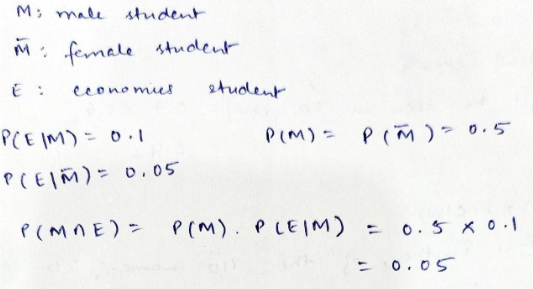 M: male student
M̄ : female student
E : economics student
P(E|M) = 0.1 P(M) = P(M̄) = 0.5
P(E|M̄) = 0.05
P(M∩E) = P(M). P(E|M) = 0.5 × 0.1
= 0.05